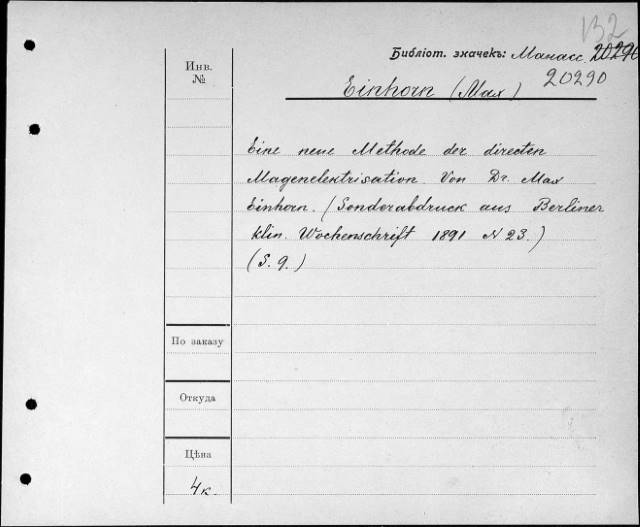 132
Библіот. значекъ: Манасс. 20290
20290
Инв.
№
Einhorn (Max)
Eine neue Methode der directen
Magenelektrisation. Von Dr. Max
Einhorn. (Sonderabdruck aus Berliner
klin. Wochenschrift 1891 N 23.)
(S. 9.)
По заказу
Откуда
Цѣна
4 к.